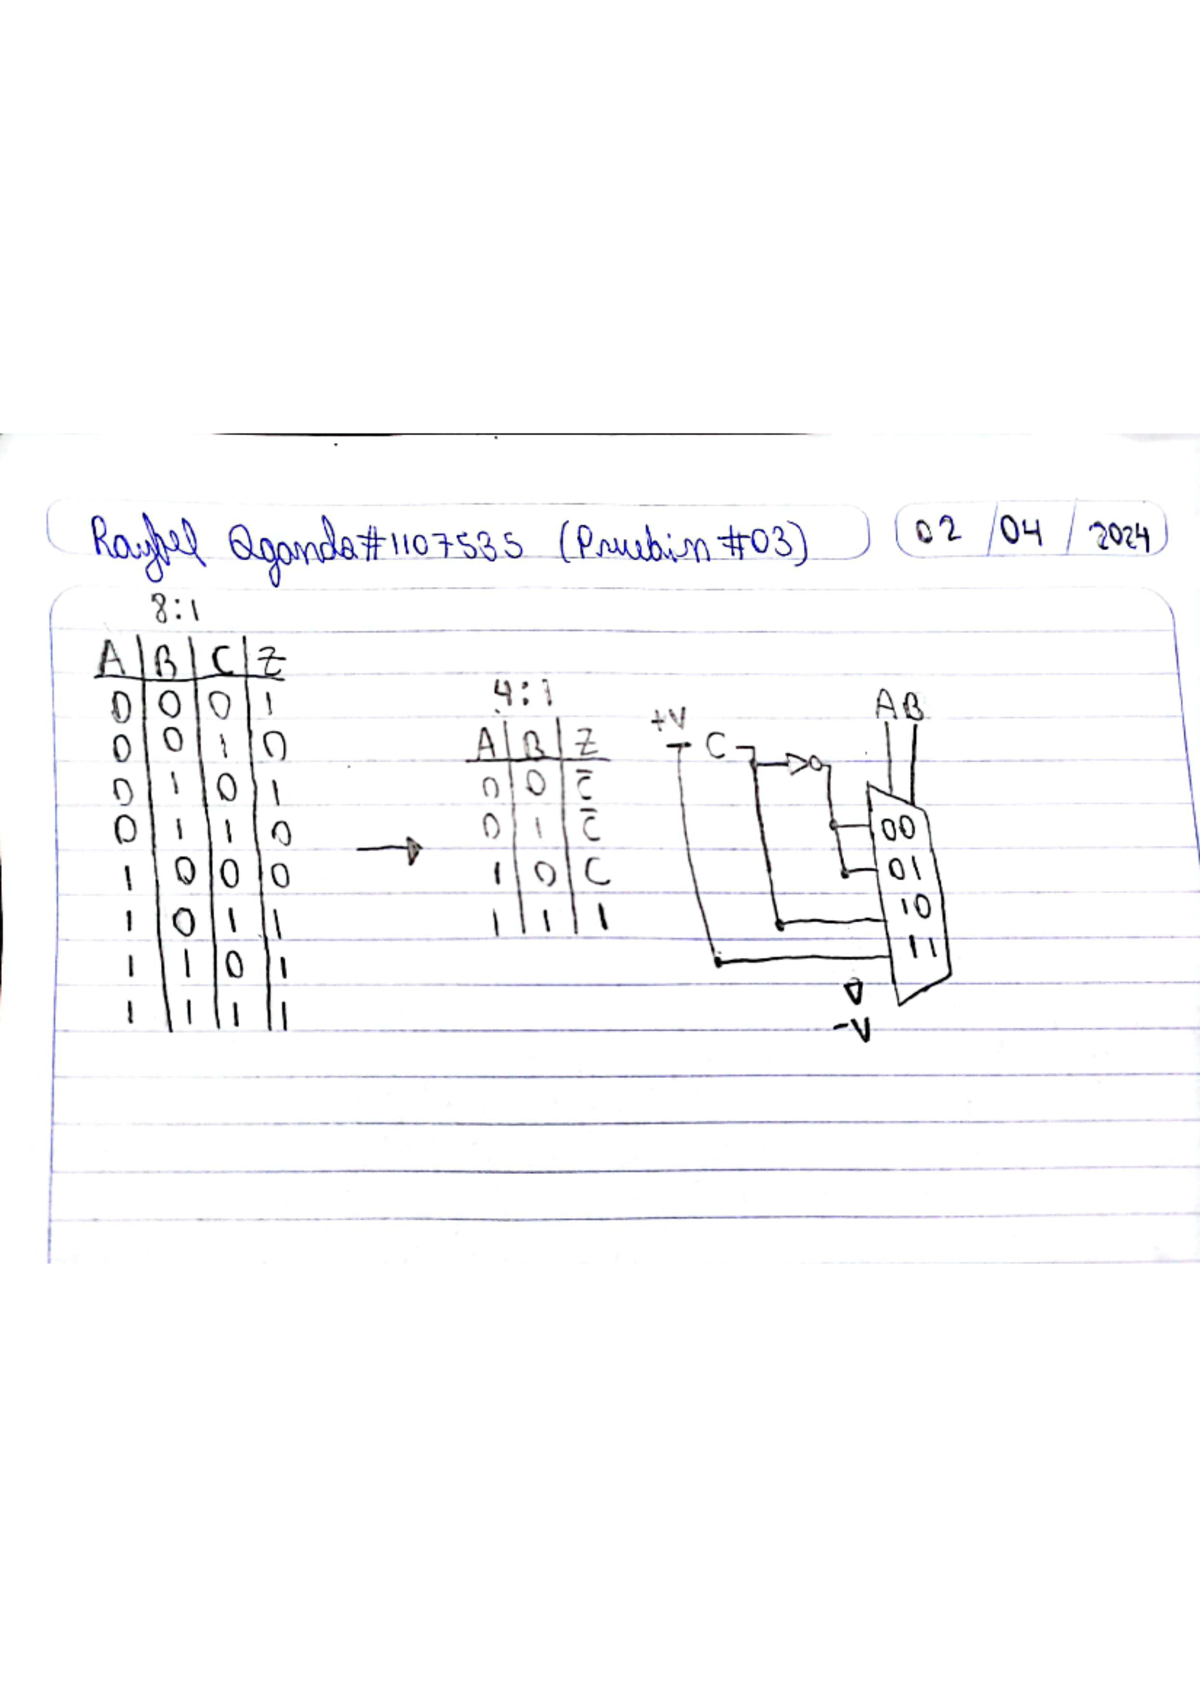 Raybel Oganda #1107535 (Pruebin #03) 02/04/2024
8:1
A B C Z
0 0 0 1
0 0 1 0
0 1 0 1
0 1 1 0
1 0 0 0
1 0 1 1
1 1 0 1
1 1 1 1
4:1
A B Z
0 0 C̅
0 1 C̅
1 0 C
1 1 1
+V
C
A B
00
01
10
11
-V